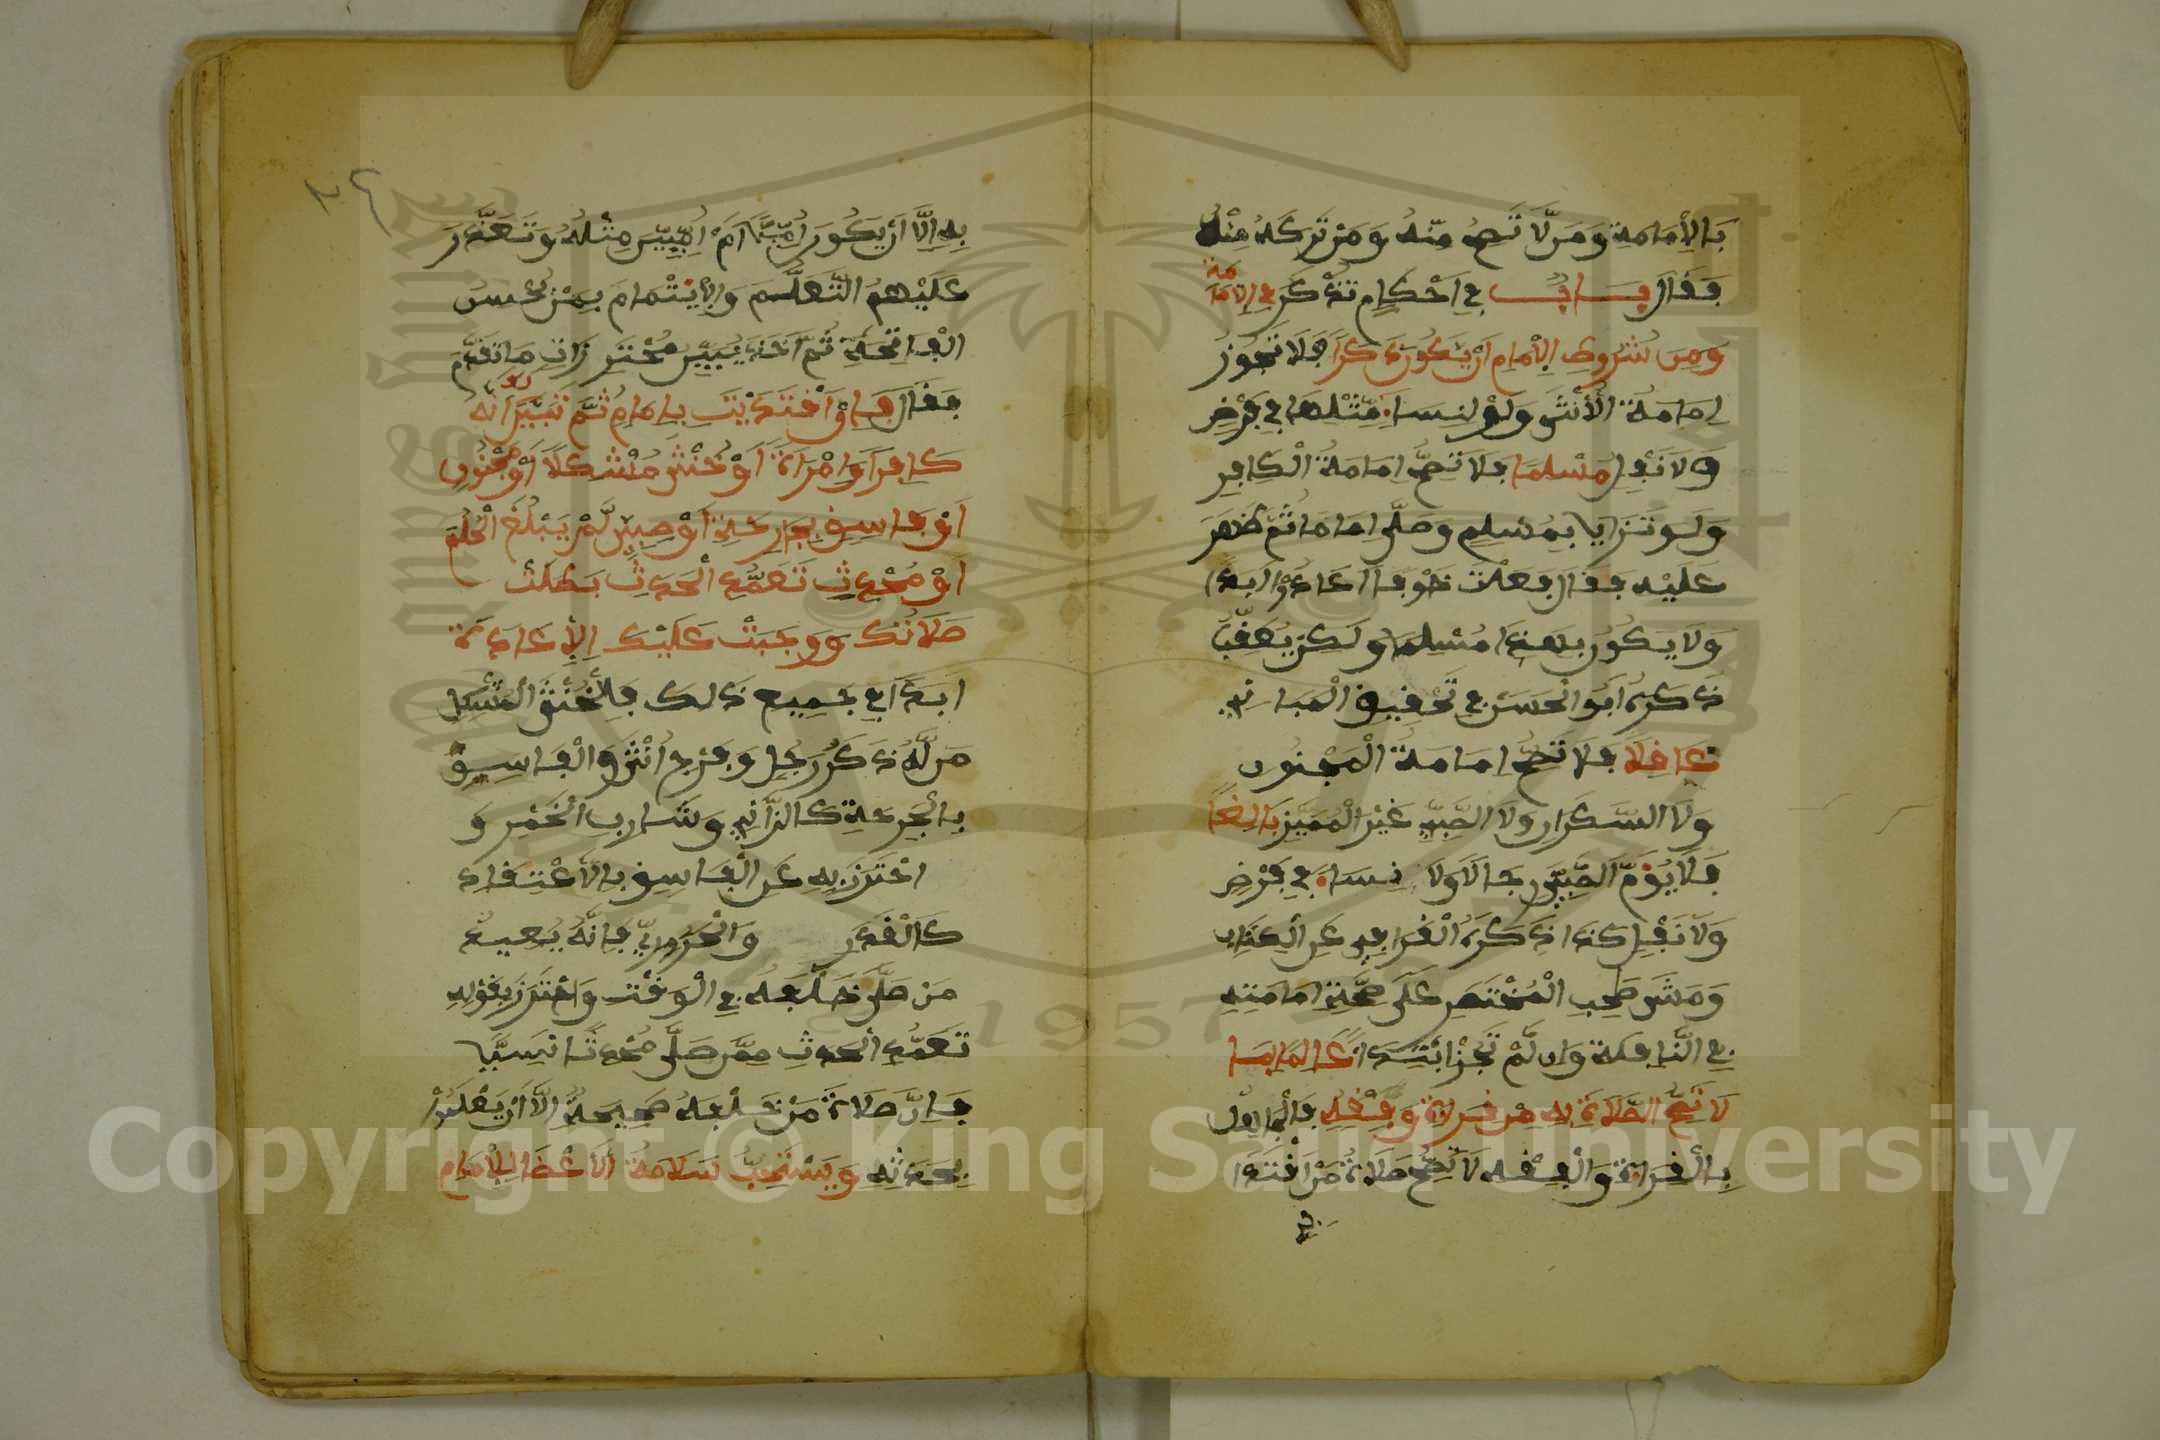 بَالِامَامَةِ وَمَن لَّا تَصِحُّ مِنْهُ وَمَنْ تَرِكَهُ مِنْهُ
فَقَالَ بَابٌ فِي اَحْكَامٍ تُذْكَرُ فِي الِامَامَة
وَمِن شُرُوطِ الِامَامِ اَنْ يَكُونَ ذَكَراً فَلَا تَجُوزُ
اِمَامَةُ الْأُنْثَى وَلَوْ لِنِسَاءٍ مِّثْلِهَا فِي فَرْضٍ
وَلَا نَفْلٍ مُسْلِماً فَلَا تَصِحُّ اِمَامَةُ الْكَافِرِ
وَلَوْ تَزَايَا بِمُسْلِمٍ وَصَلَّى اِمَامًا ثُمَّ ظَهَرَ
عَلَيْهِ فَقَالَ فَعَلْتُ خَوْفاً اَعَادُوا اَبَداً
وَلَا يَكُونُ بِهَذَا مُسْلِماً وَلَكِن يُعَاقَبُ
ذَكَرَهُ اَبُو الْحَسَنِ فِي تَحْقِيقِ الْمَبَانِي
عَاقِلًا فَلَا تَصِحُّ اِمَامَةُ الْمَجْنُونِ
وَلَا السَّكْرَانِ وَلَا الصَّبِيِّ غَيْرِ الْمُمَيِّزِ بَالِغاً
فَلَا يَؤُمُّ الصَّبِيُّ رِجَالًا وَلَا نِسَاءً فِي فَرْضٍ
وَلَا نَفْلٍ كَذَا ذَكَرَهُ الْقَرَافِي عَنِ الْكِتَابِ
وَمَشَى صَاحِبِ الْمُخْتَصَرِ عَلَى صِحَّةِ اِمَامَتِهِ
فِي النَّافِلَةِ وَاِن لَّمْ تَجُزْ ابْتِدَاءً عَالِمًا بِمَا
لَا تَصِحُّ الصَّلَاةُ اِلَّا بِهِ مِن قِرَاءَةٍ وَفِقْهٍ فَالْجَاهِلُ
بِالْقِرَاءَةِ وَالْفِقْهِ لَا تَصِحُّ صَلَاةُ مَنْ اقْتَدَا
بِهِ
بِهِ اِلَّا اَنْ يَكُونَ اُمِّيًّا اَمَّ اُمِّيِّينَ مِثْلَهُ وَتَعَذَّرَ
عَلَيْهِمُ التَّعَلُّمُ وَالِايتِمَامُ بِمَنْ يُحْسِنُ
الْفَاتِحَةَ ثُمَّ اَخَذَ يُبَيِّنُ مُحْتَرَزَاتِ مَا تَقَدَّمَ
فَقَالَ فَاِنِ اقْتَدَيْتَ بِاِمَامٍ ثُمَّ تَبَيَّنَ لَكَ اَنَّهُ
كَافِرٌ اَوِ امْرَاَةٌ اَوْ خُنْثَى مُشْكِلًا اَوْ مَجْنُونٌ
اَوْ فَاسِقٌ بِجَارِحَةٍ اَوْ صَبِيٌّ لَّمْ يَبْلُغِ الْحُلُمَ
اَوْ مُحْدِثٌ تَعَمَّدَ الْحَدَثَ بَطَلَتْ
صَلَاتُكَ وَوَجَبَتْ عَلَيْكَ الِاعَادَةُ
اَبَداً فِي جَمِيعِ ذَلِكَ فَالْخُنْثَى الْمُشْكِلُ
مَن لَّهُ ذَكَرُ رَجُلٍ وَفَرْجُ اُنْثَى وَالْفَاسِقُ
بِالْجَارِحَةِ كَالزَّانِي وَشَارِبِ الْخَمْرِ وَ
احْتَرَزَ بِهِ عَنِ الْفَاسِقِ بِالِاعْتِقَادِ
كَالْقَدَرِي وَالْحَرُورِيِّ فَاِنَّهُ يُعِيدُ
مَن صَلَّى خَلْفَهُ فِي الْوَقْتِ وَاحْتَرَزَ بِقَوْلِهِ
تَعَمَّدَ الْحَدَثَ مِمَّن صَلَّى مُحْدِثًا نَاسِيًا
فَاِنَّ صَلَاةَ مَنْ خَلْفَهُ صَحِيحَةٌ اِلَّا اَنْ يَعْلَمُوا
بِحَدَثِهِ وَيُسْتَحَبُّ سَلَامَةُ الْاَعْضَاءِ لِلْاِمَامِ